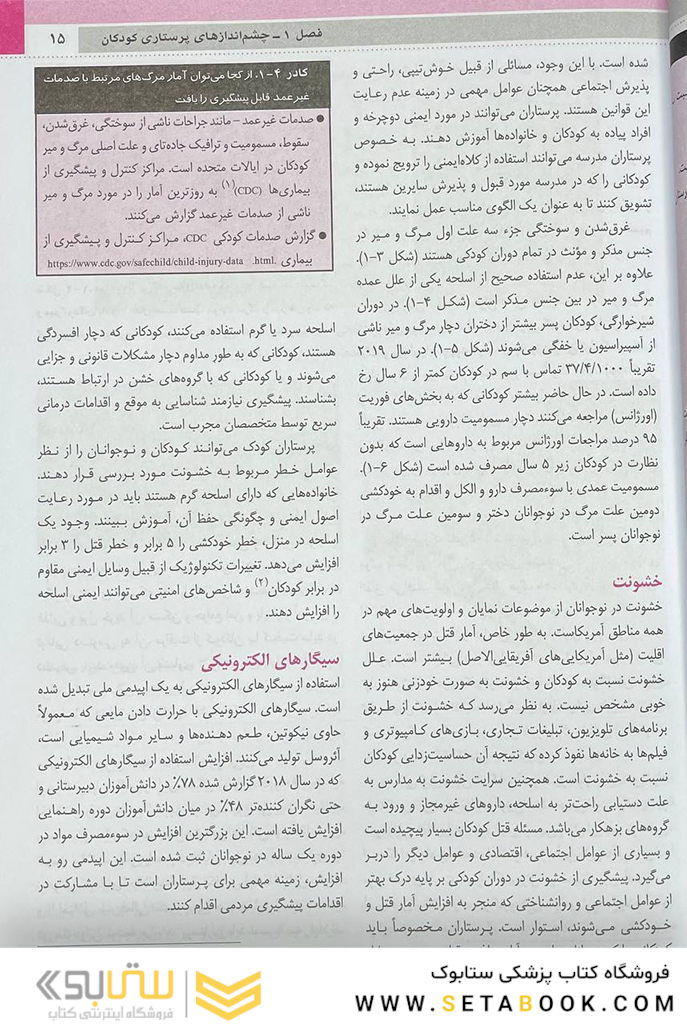 فصل ۱ ــ چشم‌اندازهای پرستاری کودکان
۱۵
شده است. با این وجود، مسائلی از قبیل خوش‌تیپی، راحتی و
پذیرش اجتماعی همچنان عوامل مهمی در زمینه عدم رعایت
این قوانین هستند. پرستاران می‌توانند در مورد ایمنی دوچرخه و
افراد پیاده به کودکان و خانواده‌ها آموزش دهند. به خصوص
پرستاران مدرسه می‌توانند استفاده از کلاه‌ایمنی را ترویج نموده و
کودکانی را که در مدرسه مورد قبول و پذیرش سایرین هستند،
تشویق کنند تا به عنوان یک الگوی مناسب عمل نمایند.
غرق‌شدن و سوختگی جزء سه علت اول مرگ و میر در
جنس مذکر و مؤنث در تمام دوران کودکی هستند (شکل ۳-۱).
علاوه بر این، عدم استفاده صحیح از اسلحه یکی از علل عمده
مرگ و میر در بین جنس مذکر است (شکل ۴-۱). در دوران
شیرخوارگی، کودکان پسر بیشتر از دختران دچار مرگ و میر ناشی
از آسپیراسیون یا خفگی می‌شوند (شکل ۵-۱). در سال ۲۰۱۹
تقریباً ۳۷/۴/۱۰۰۰ تماس با سم در کودکان کمتر از ۶ سال رخ
داده است. در حال حاضر بیشتر کودکانی که به بخش‌های فوریت
(اورژانس) مراجعه می‌کنند دچار مسمومیت دارویی هستند. تقریباً
۹۵ درصد مراجعات اورژانس مربوط به داروهایی است که بدون
نظارت در کودکان زیر ۵ سال مصرف شده است (شکل ۶-۱).
مسمومیت عمدی با سوءمصرف دارو و الکل و اقدام به خودکشی
دومین علت مرگ در نوجوانان دختر و سومین علت مرگ در
نوجوانان پسر است.
خشونت
خشونت در نوجوانان از موضوعات نمایان و اولویت‌های مهم در
همه مناطق آمریکاست. به طور خاص، آمار قتل در جمعیت‌های
اقلیت (مثل آمریکایی‌های آفریقایی‌الاصل) بیشتر است. علل
خشونت نسبت به کودکان و خشونت به صورت خودزنی هنوز به
خوبی مشخص نیست. به نظر می‌رسد که خشونت از طریق
برنامه‌های تلویزیون، تبلیغات تجاری، بازی‌های کامپیوتری و
فیلم‌ها به خانه‌ها نفوذ کرده که نتیجه آن حساسیت‌زدایی کودکان
نسبت به خشونت است. همچنین سرایت خشونت به مدارس به
علت دستیابی راحت‌تر به اسلحه، داروهای غیرمجاز و ورود به
گروه‌های بزهکار می‌باشد. مسئله قتل کودکان بسیار پیچیده است
و بسیاری از عوامل اجتماعی، اقتصادی و عوامل دیگر را دربر
می‌گیرد. پیشگیری از خشونت در دوران کودکی بر پایه درک بهتر
از عوامل اجتماعی و روانشناختی که منجر به افزایش آمار قتل و
خودکشی می‌شوند، استوار است. پرستاران مخصوصاً باید
کادر ۴-۱. از کجا می‌توان آمار مرگ‌های مرتبط با صدمات
غیرعمد قابل پیشگیری را یافت
● صدمات غیرعمد – مانند جراحات ناشی از سوختگی، غرق‌شدن،
سقوط، مسمومیت و ترافیک جاده‌تای و علت اصلی مرگ و میر
کودکان در ایالات متحده است. مراکز کنترل و پیشگیری از
بیماری‌ها (CDC)(۱) به روزترین آمار را در مورد مرگ و میر
ناشی از صدمات غیرعمد گزارش می‌کنند.
● گزارش صدمات کودکی CDC، مراکز کنترل و پیشگیری از
بیماری https://www.cdc.gov/safechild/child-injury-data .html.
اسلحه سرد یا گرم استفاده می‌کنند، کودکانی که دچار افسردگی
هستند، کودکانی که به طور مداوم دچار مشکلات قانونی و جزایی
می‌شوند و یا کودکانی که با گروه‌های خشن در ارتباط هستند،
بشناسند. پیشگیری نیازمند شناسایی به موقع و اقدامات درمانی
سریع توسط متخصصان مجرب است.
پرستاران کودک می‌توانند کودکان و نوجوانان را از نظر
عوامل خطر مربوط به خشونت مورد بررسی قرار دهند.
خانواده‌هایی که دارای اسلحه گرم هستند باید در مورد رعایت
اصول ایمنی و چگونگی حفظ آن، آموزش ببینند. وجود یک
اسلحه در منزل، خطر خودکشی را ۵ برابر و خطر قتل را ۳ برابر
افزایش می‌دهد. تغییرات تکنولوژیک از قبیل وسایل ایمنی مقاوم
در برابر کودکان(۲) و شاخص‌های امنیتی می‌توانند ایمنی اسلحه
را افزایش دهند.
سیگارهای الکترونیکی
استفاده از سیگارهای الکترونیکی به یک اپیدمی ملی تبدیل شده
است. سیگارهای الکترونیکی با حرارت دادن مایعی که معمولاً
حاوی نیکوتین، طعم دهنده‌ها و سایر مواد شیمیایی است،
آئروسل تولید می‌کنند. افزایش استفاده از سیگارهای الکترونیکی
که در سال ۲۰۱۸ گزارش شده ۷۸٪ در دانش‌آموزان دبیرستانی و
حتی نگران کننده‌تر ۴۸٪ در میان دانش‌آموزان دوره راهنمایی
افزایش یافته است. این بزرگترین افزایش در سوءمصرف مواد در
دوره یک ساله در نوجوانان ثبت شده است. این اپیدمی رو به
افزایش، زمینه مهمی برای پرستاران است تا با مشارکت در
اقدامات پیشگیری مردمی اقدام کنند.
فروشگاه کتاب پزشکی ستابوک
WWW.SETABOOK.COM
ستابوک
فروشگاه اینترنتی کتاب